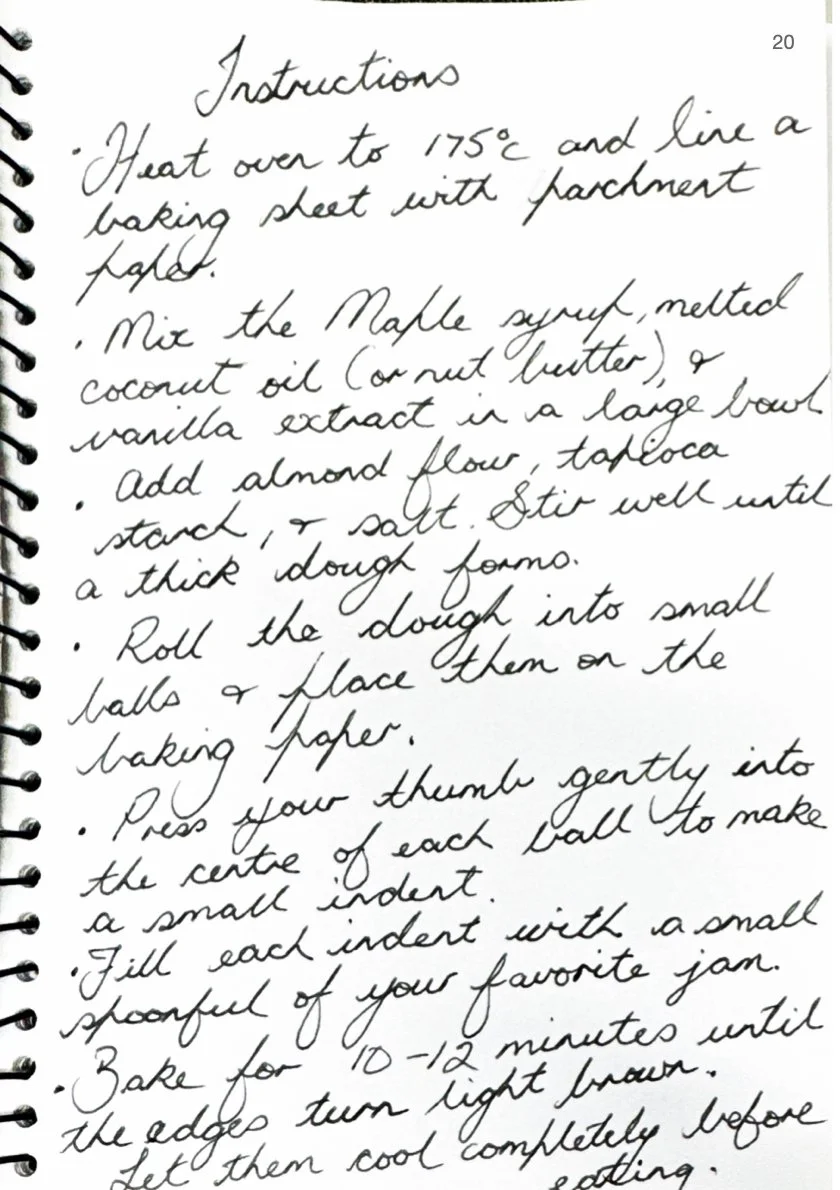 20
Instructions
• Heat oven to 175°C and line a
baking sheet with parchment
paper.
• Mix the Maple syrup, melted
coconut oil (or nut butter), &
vanilla extract in a large bowl
• Add almond flour, tapioca
starch, & salt. Stir well until
a thick dough forms.
• Roll the dough into small
balls & place them on the
baking paper.
• Press your thumb gently into
the centre of each ball to make
a small indent.
• Fill each indent with a small
spoonful of your favorite jam.
• Bake for 10-12 minutes until
the edges turn light brown.
Let them cool completely before
eating.